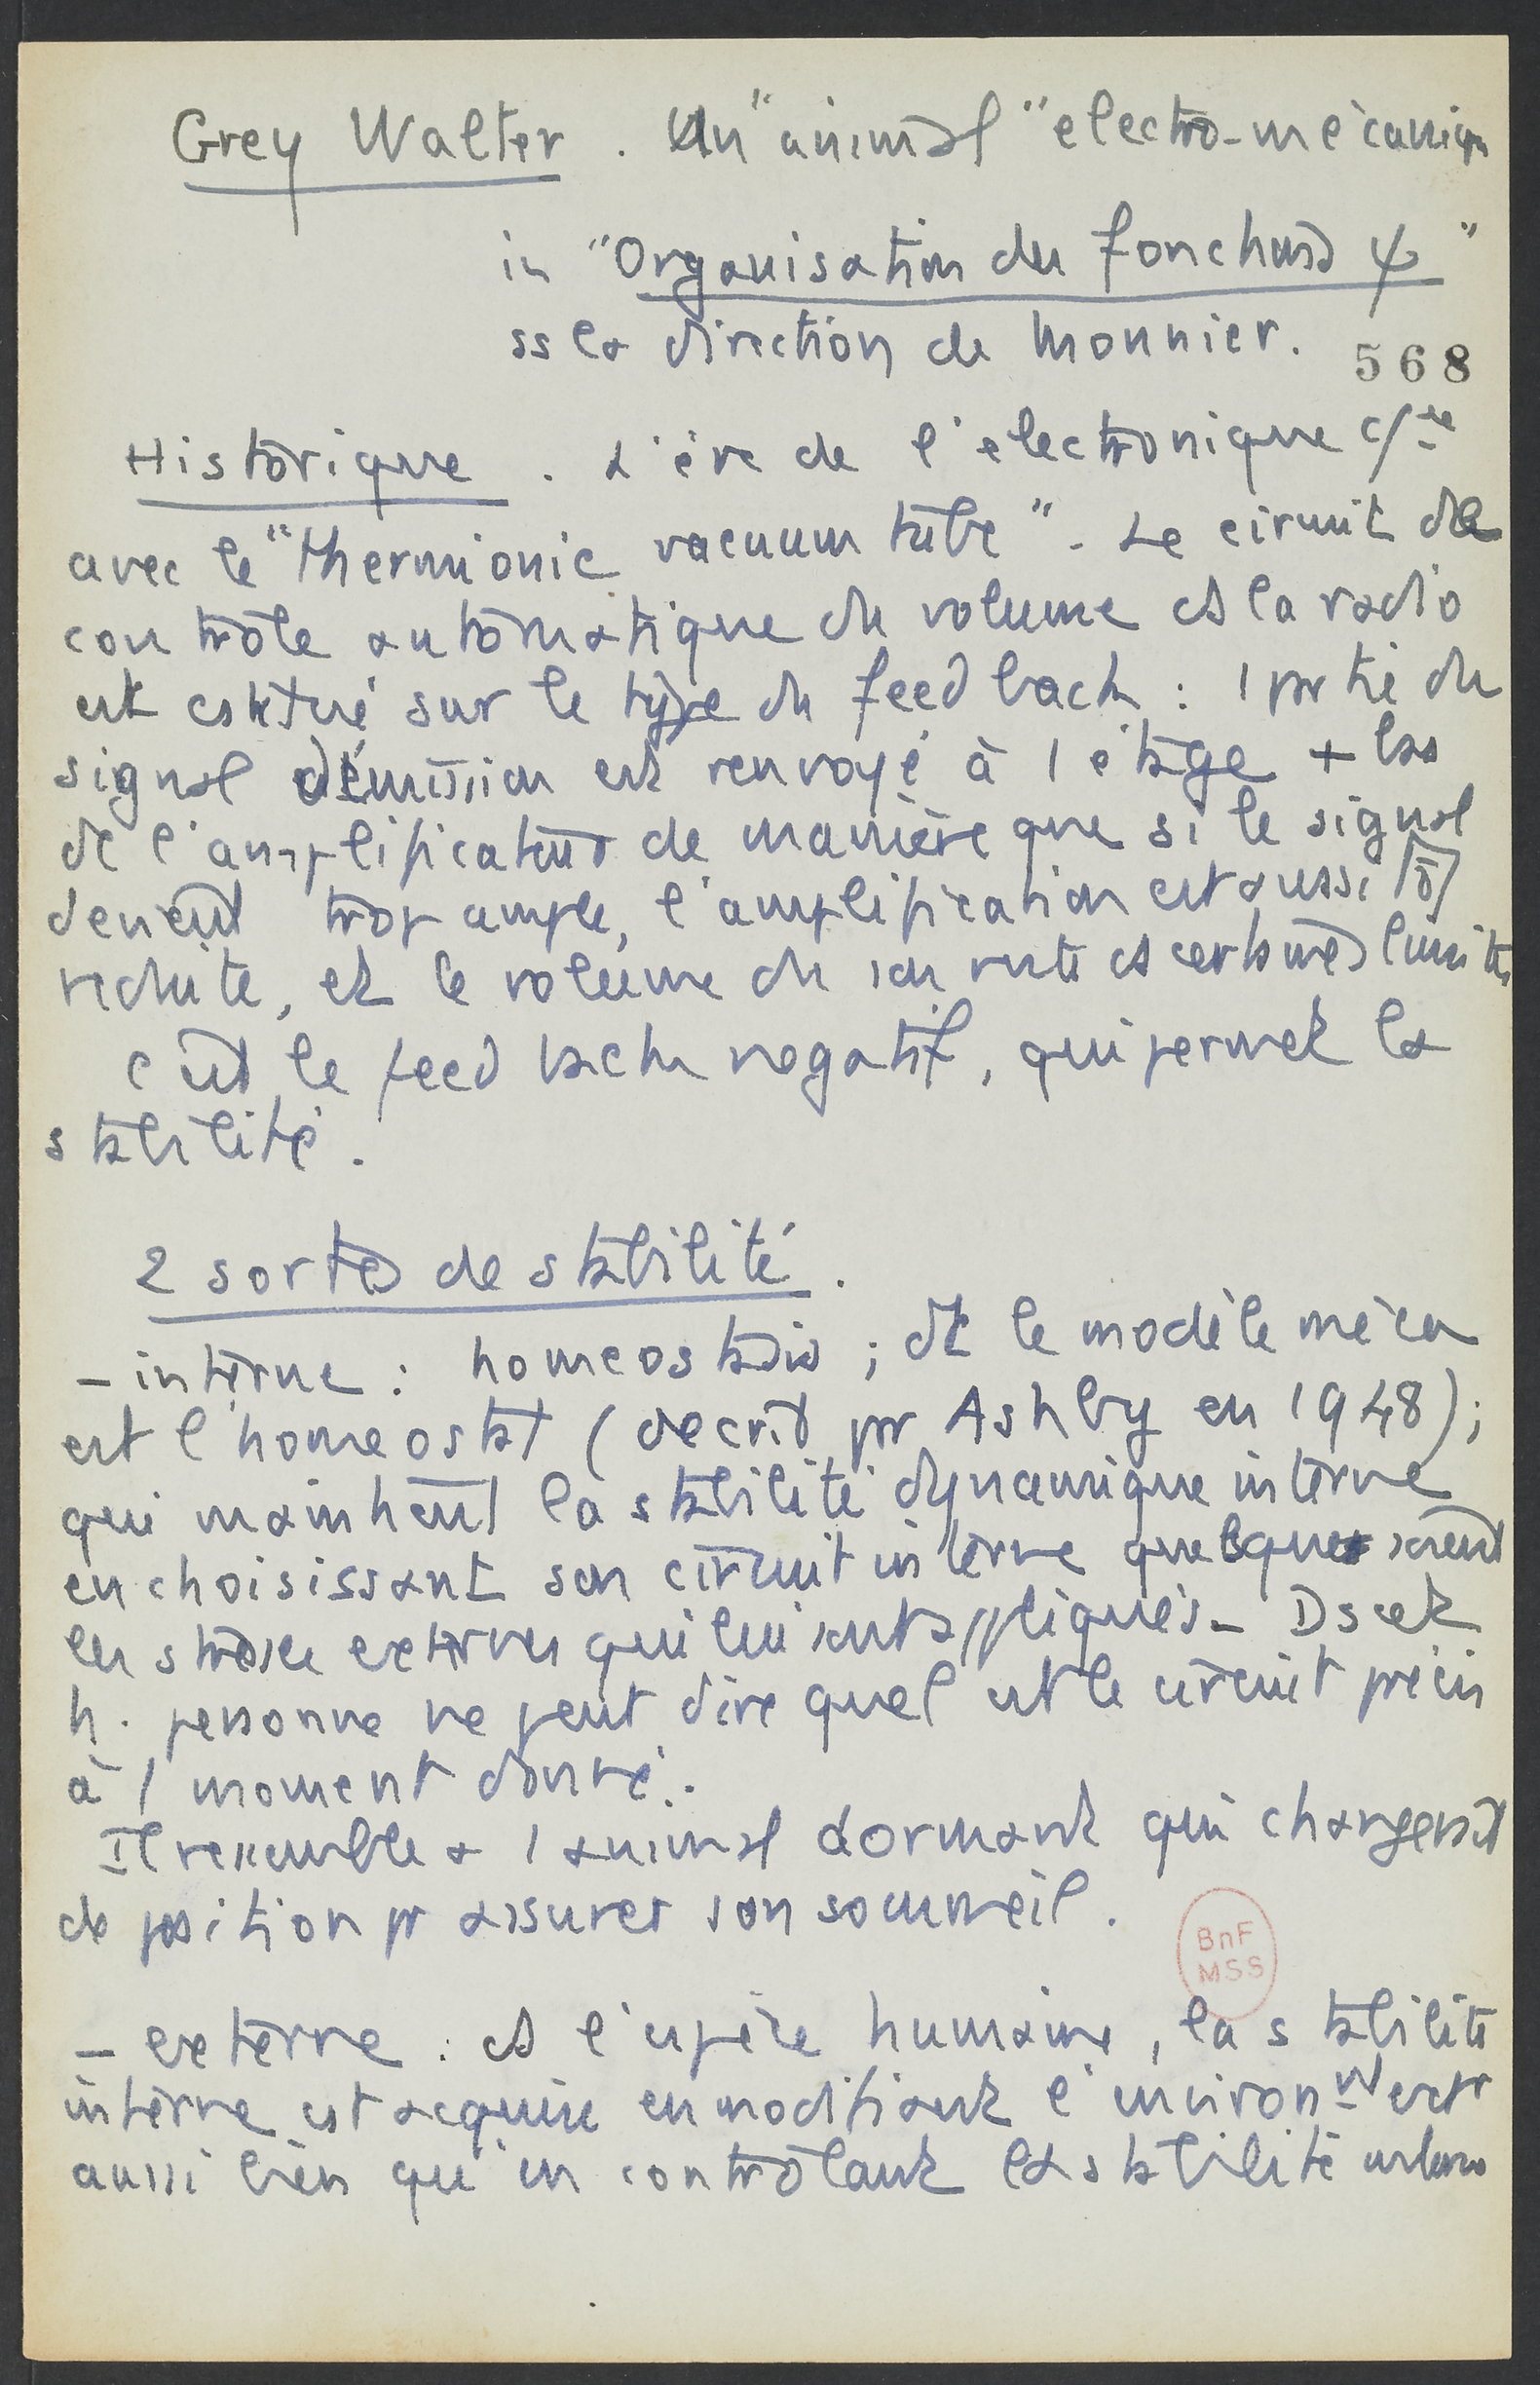 Grey Walter. Un "animal" electro-mécaniqu
in "Organisation des fonctions ψ"
ss la direction de Monnier.
568
Historique. L'ère de l'electronique c/ce
avec le "thermionic vacuum tube". Le circuit de
contrôle automatique du volume ds la radio
est cstitué sur le type du feed back : 1 partie du
signal d'émission est renvoyé à 1 étage + bas
de l'amplificateur de manière que si le signal
devient trop ample, l'amplification est aussitôt
réduite, et le volume du son reste ds certaines limites
C'est le feed back negatif, qui permet la
stabilité.
2 sortes de stabilité.
- interne : homeostasis ; dt le modèle méca
est l'homeostat (décrit par Ashby en 1948) ;
qui maintient la stabilité dynamique interne
en choisissant son circuit interne quelques soient
les stress externes qui lui sont appliqués - Ds cet
h. personne ne peut dire quel est le circuit précis
à 1 moment donné.
Il ressemble a 1 animal dormant qui changerait
de position pr assurer son sommeil.
BnF
MSS
- externe : ds l'espèce humaine, la stabilité
interne est acquise en modifiant l'environnt extr
aussi bien qu'en contrôlant la stabilité interne